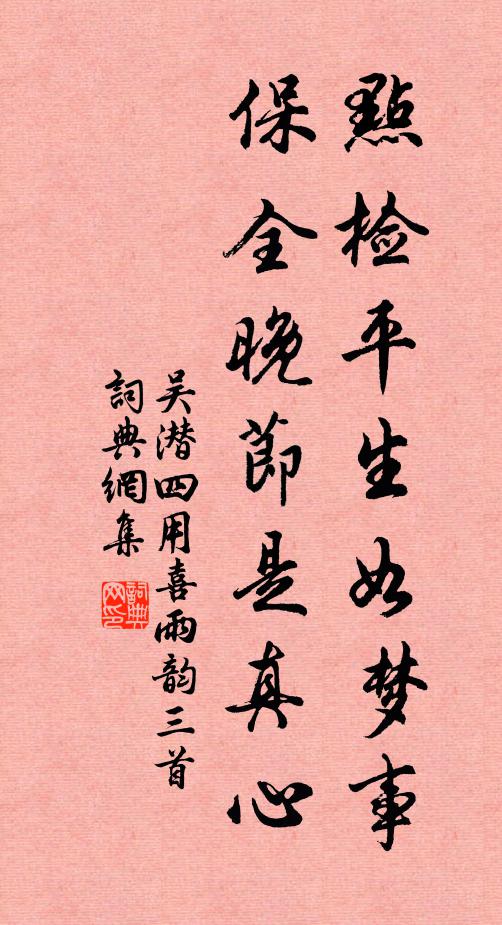 點檢平生如梦事
保全晚節是真心
吴潜四用喜雨韵三首
詞典網集
詞典
网印